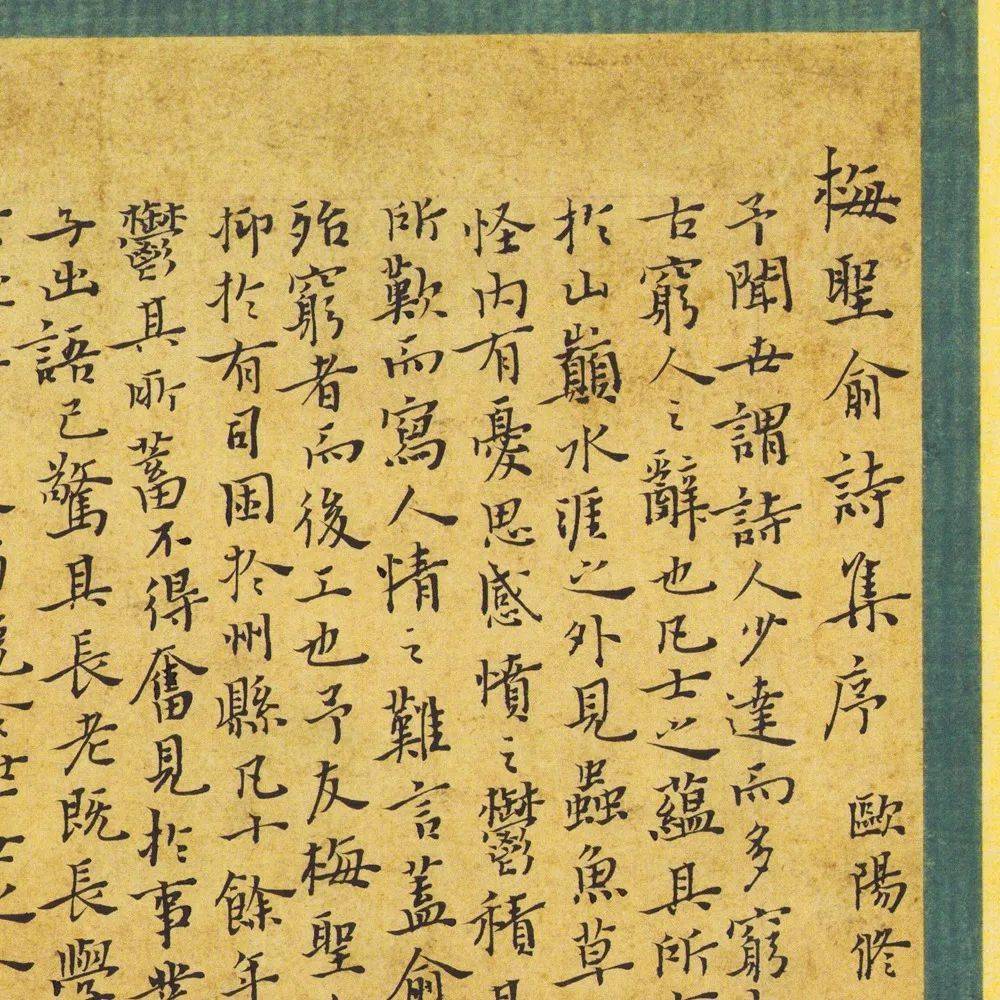 梅聖俞詩集序 歐陽修
予聞世謂詩人少達而多窮
古窮人之辭也凡士之蘊其所
於山巔水涯之外見蟲魚草
怪內有憂思感憤之鬱積
所歎而寫人情之難言蓋俞
殆窮者而後工也予友梅聖
抑於有司困於州縣凡十餘年
鬱其所蓄不得奮見於事業
子出語已驚其長老既長學